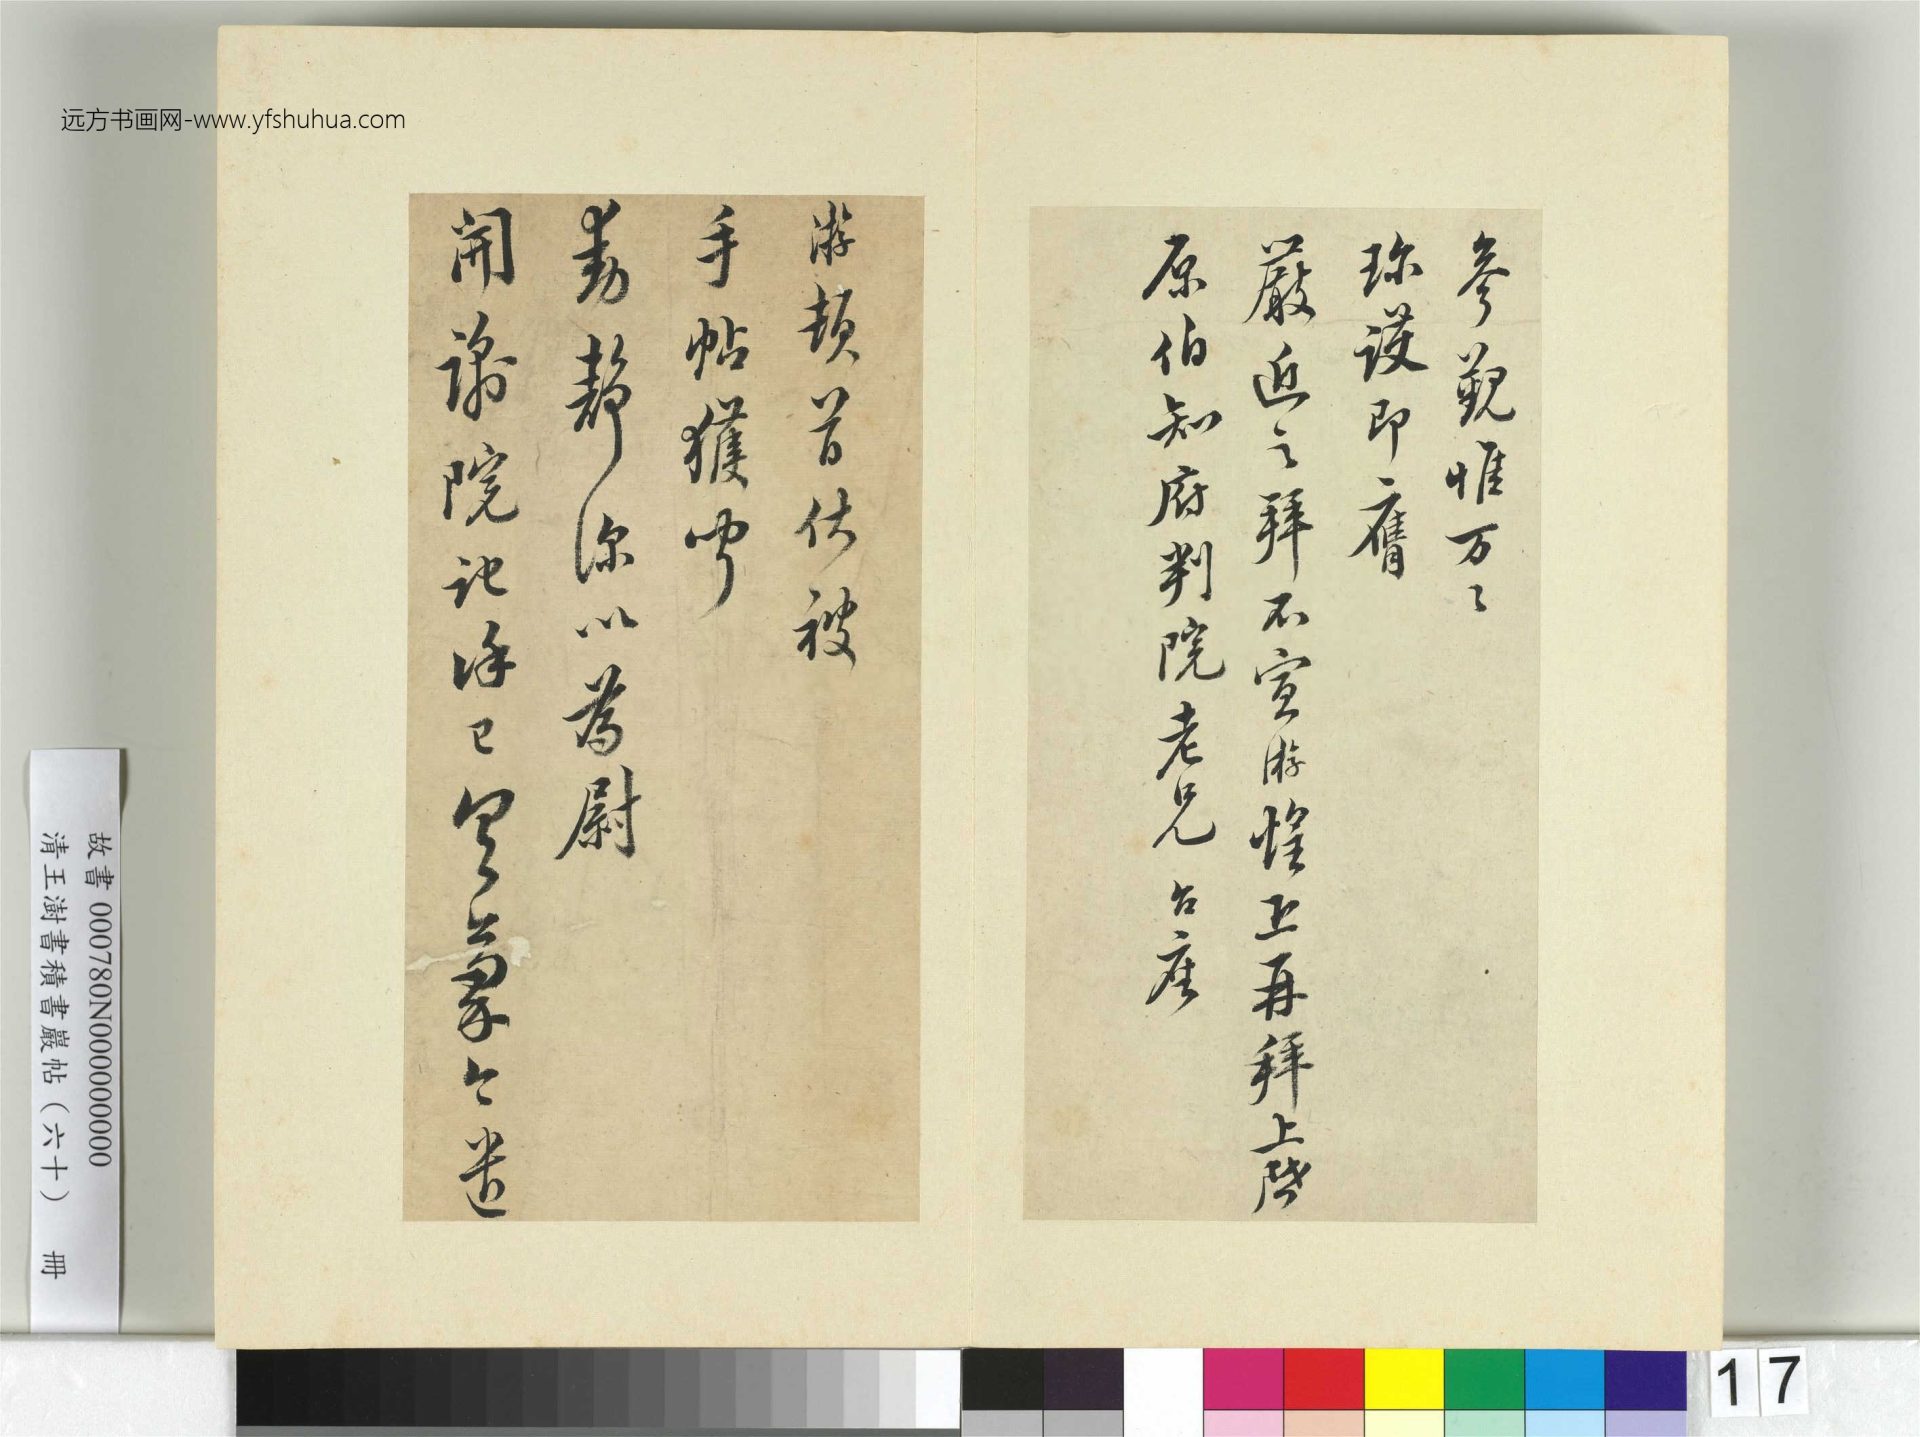 远方书画网-www.yfshuhua.com
參觀惟万々
珎護即膺
嚴近之拜不宣游惶恐再拜上啓
原伯知府判院老兄 台座
游頓首伏被
手帖獲聞
動靜深以爲尉
開諭院記條已具藁今遣
故書 000780N000000000
清王澍書積書巖帖(六十) 冊
17